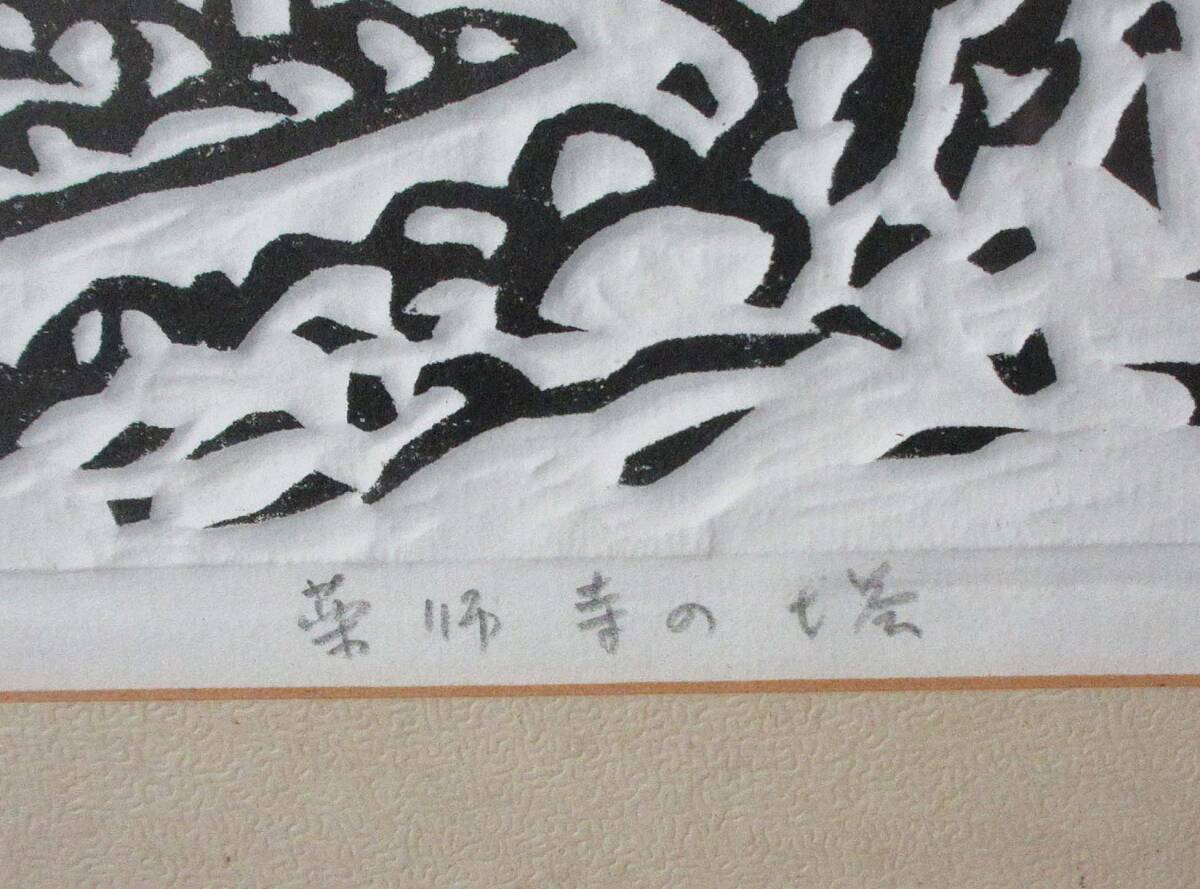 薬師寺の塔